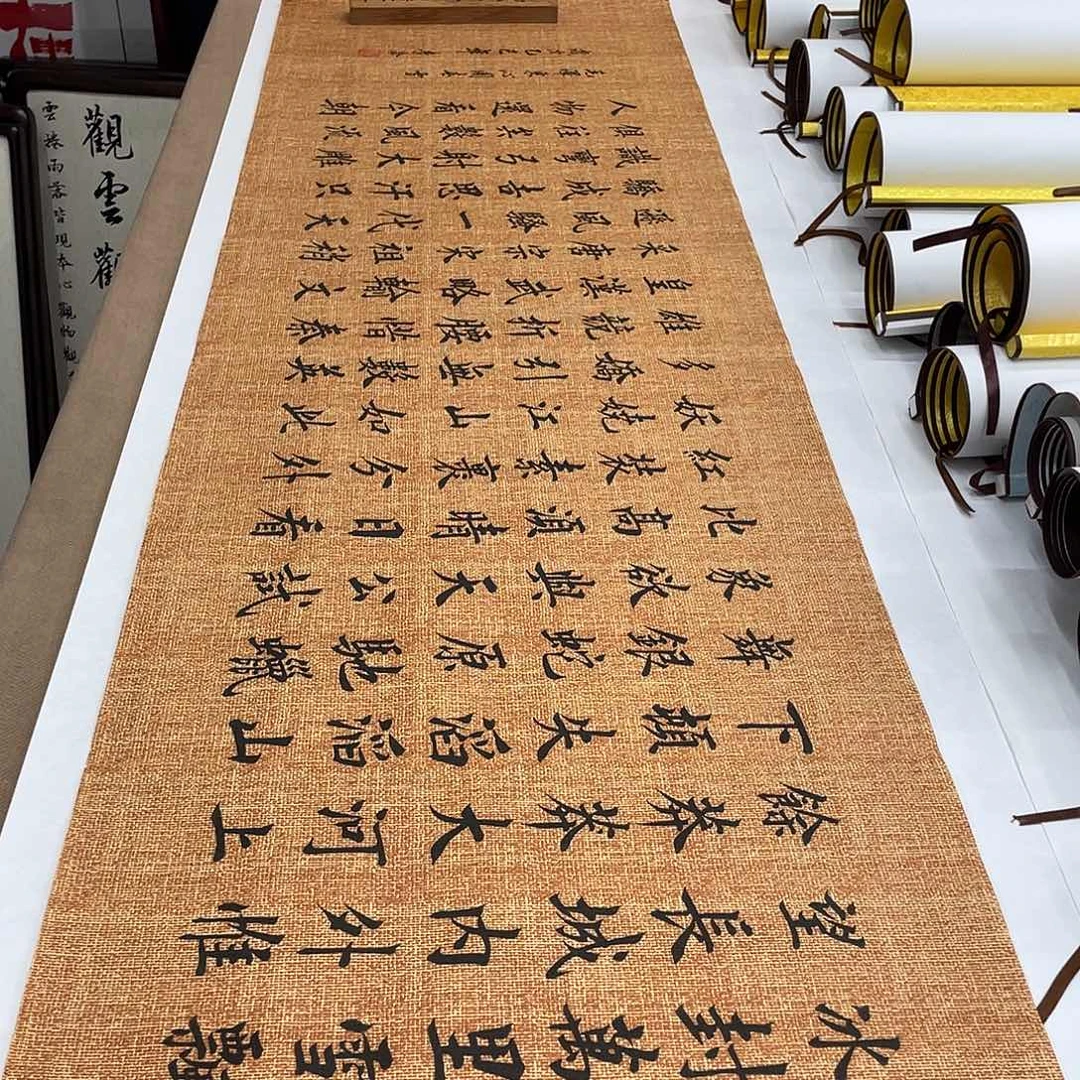 冰封萬里雪飄
望長城內外惟
餘莽莽大河上
下頓失滔滔山
舞銀蛇原馳蠟
象欲與天公試
比高須晴日看
紅裝素裹分外
妖嬈江山如此
多嬌引無數英
雄競折腰惜秦
皇漢武略輸文
采唐宗宋祖稍
遜風騷一代天
驕成吉思汗只
識彎弓射大雕
俱往矣數風流
人物還看今朝
毛澤東沁園春雪
觀雲觀
雲捲雨落皆現本心觀物